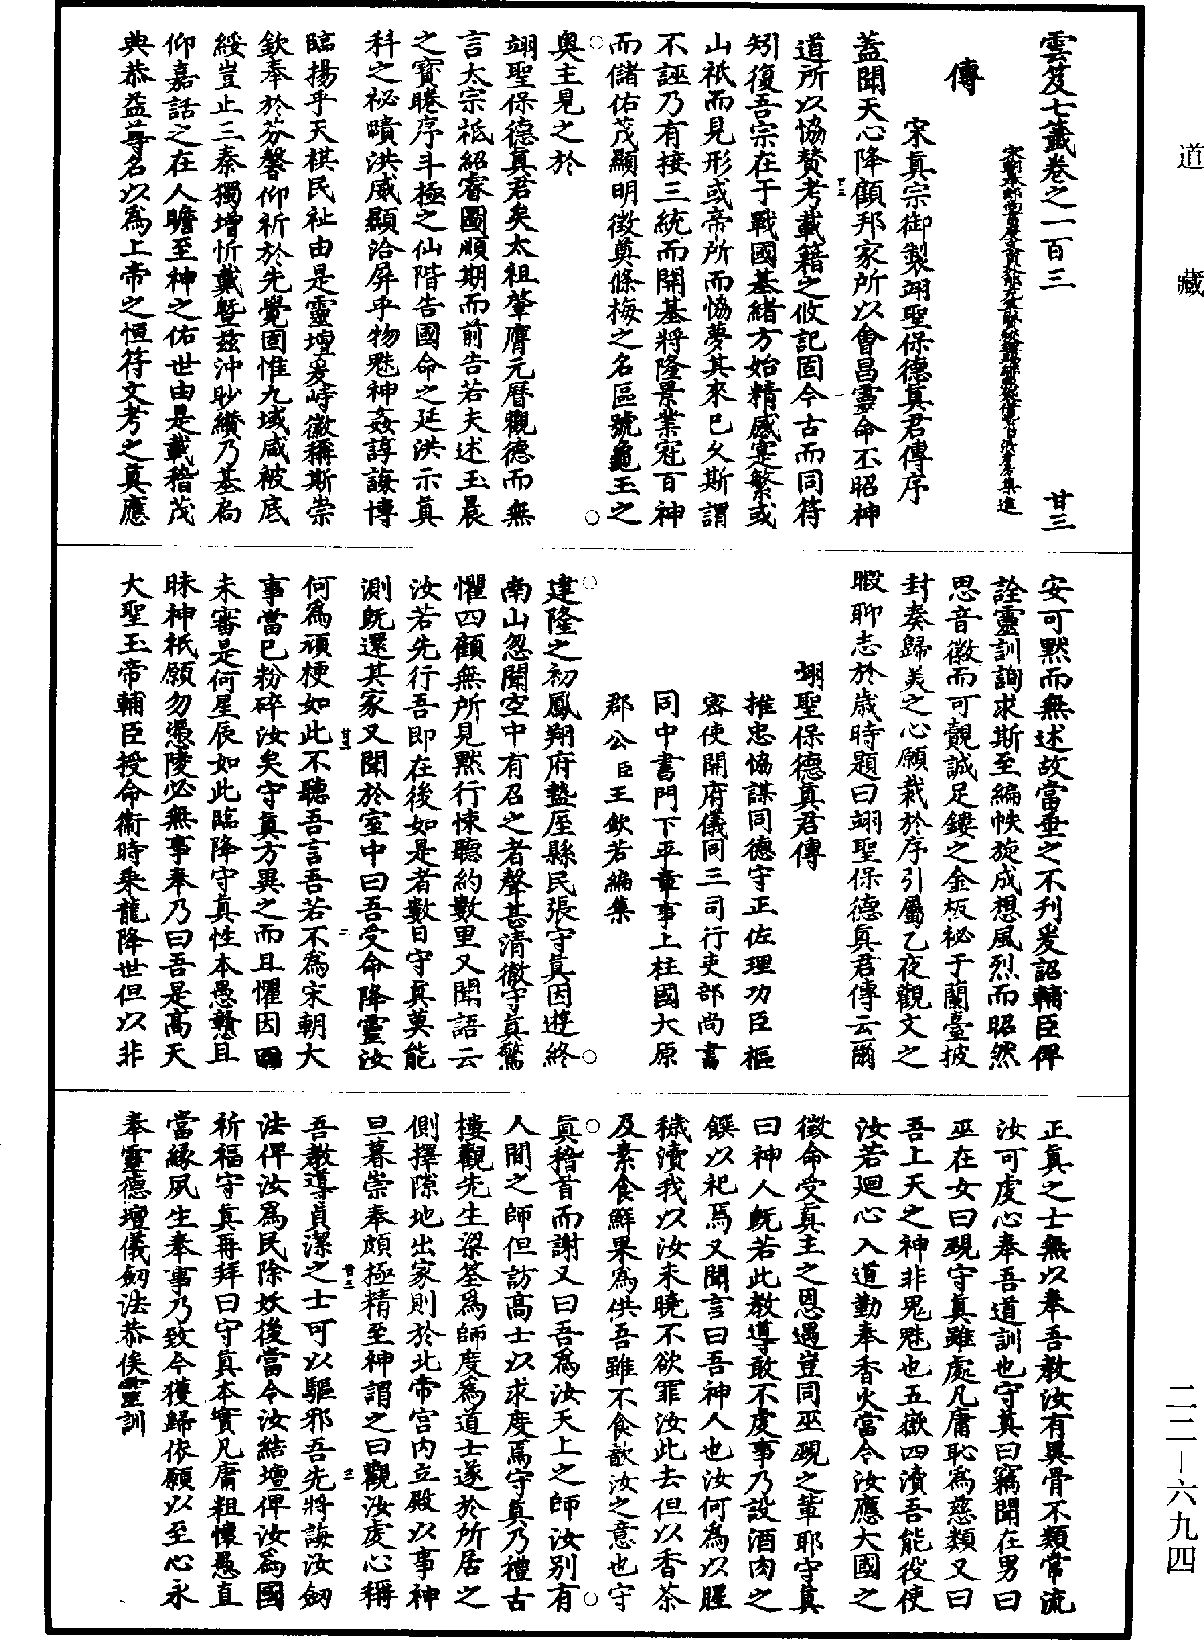 道藏
雲笈七籤卷之一百三 廿三
傳
宋真宗御製翊聖保德真君傳序
蓋聞天心降顧邦家所以會昌靈命丕昭神
道所以協贊考載籍之攸記固今古而同符
矧復吾宗在于戰國基緒方始精感寔繁或
山祇而見形或帝所而恊夢其來已久斯謂
不誣乃有接三統而開基將隆景業冠百神
而儲佑茂顯明徵奠絛梅之名區號龜玉之
奥主見之於
翊聖保德真君矣太祖肇膺元曆觀德而無
言太宗祗紹睿圖順期而前告若夫述玉晨
之寶睠序斗極之仙階告國命之延洪示真
科之祕賾洪威顯洽屏乎物魅神姦諄誨博
臨揚乎天棋民祉由是靈壇爰峙徽稱斯崇
欽奉於芬馨仰祈於先覺固惟九域咸被底
綏豈止三秦獨增忻戴曁兹沖眇纘乃基扃
仰嘉話之在人瞻至神之佑世由是載稽茂
典恭益尊名以為上帝之恒符文考之真應
安可黙而無述故當垂之不刊爰詔輔臣俾
詮靈訓詢求斯至編帙旋成想風烈而昭然
思音徽而可覿誠足鏤之金板祕于蘭臺披
封奏歸美之心願裁於序引屬乙夜觀文之
暇聊志於歳時題曰翊聖保德真君傳云爾
翊聖保德真君傳
推忠恊謀同德守正佐理功臣樞
密使開府儀同三司行吏部尚書
同中書門下平章事上柱國太原
郡公臣王欽若編集
建隆之初鳳翔府盩厔縣民張守真因遊終
南山忽聞空中有召之者聲甚清徹守真驚
懼四顧無所見黙行悚聽約數里又聞語云
汝若先行吾即在後如是者數日守真莫能
測既還其家又聞於室中曰吾受命降靈汝
何為頑梗如此不聽吾言吾若不為宋朝大
事當已粉碎汝矣守真方異之而且懼因曰
未審是何星辰如此臨降守真性本愚戇且
昧神祇願勿憑陵必無事奉乃曰吾是高天
大聖玉帝輔臣授命衛時乘龍降世但以非
正真之士無以奉吾教汝有異骨不類常流
汝可虔心奉吾道訓也守真曰竊聞在男曰
巫在女曰覡守真雖處凡庸恥為慈類又曰
吾上天之神非鬼魅也五嶽四瀆吾能役使
汝若迴心入道勤奉香火當令汝應大國之
徵命受真主之恩遇豈同巫覡之輩耶守真
曰神人既若此教導敢不虔事乃設酒肉之
饌以祀焉又聞言曰吾神人也汝何為以腥
穢瀆我以汝未曉不欲罪汝此去但以香茶
及素食鮮果為供吾雖不食歆汝之意也守
真稽首而謝又曰吾為汝天上之師汝別有
人間之師但訪高士以求度焉守真乃禮古
樓觀先生梁筌為師度為道士遂於所居之
側擇隙地出家則於北帝宫内立殿以事神
旦暮崇奉頗極精至神謂之曰觀汝虔心稱
吾教導貞潔之士可以驅邪吾先將誨汝劒
法俾汝為民除妖後當令汝結壇俾汝為國
祈福守真再拜曰守真本實凡庸粗懷愚直
當緣夙生奉事乃致今獲歸依願以至心永
奉靈德壇儀劒法恭俟靈訓
二二—六九四